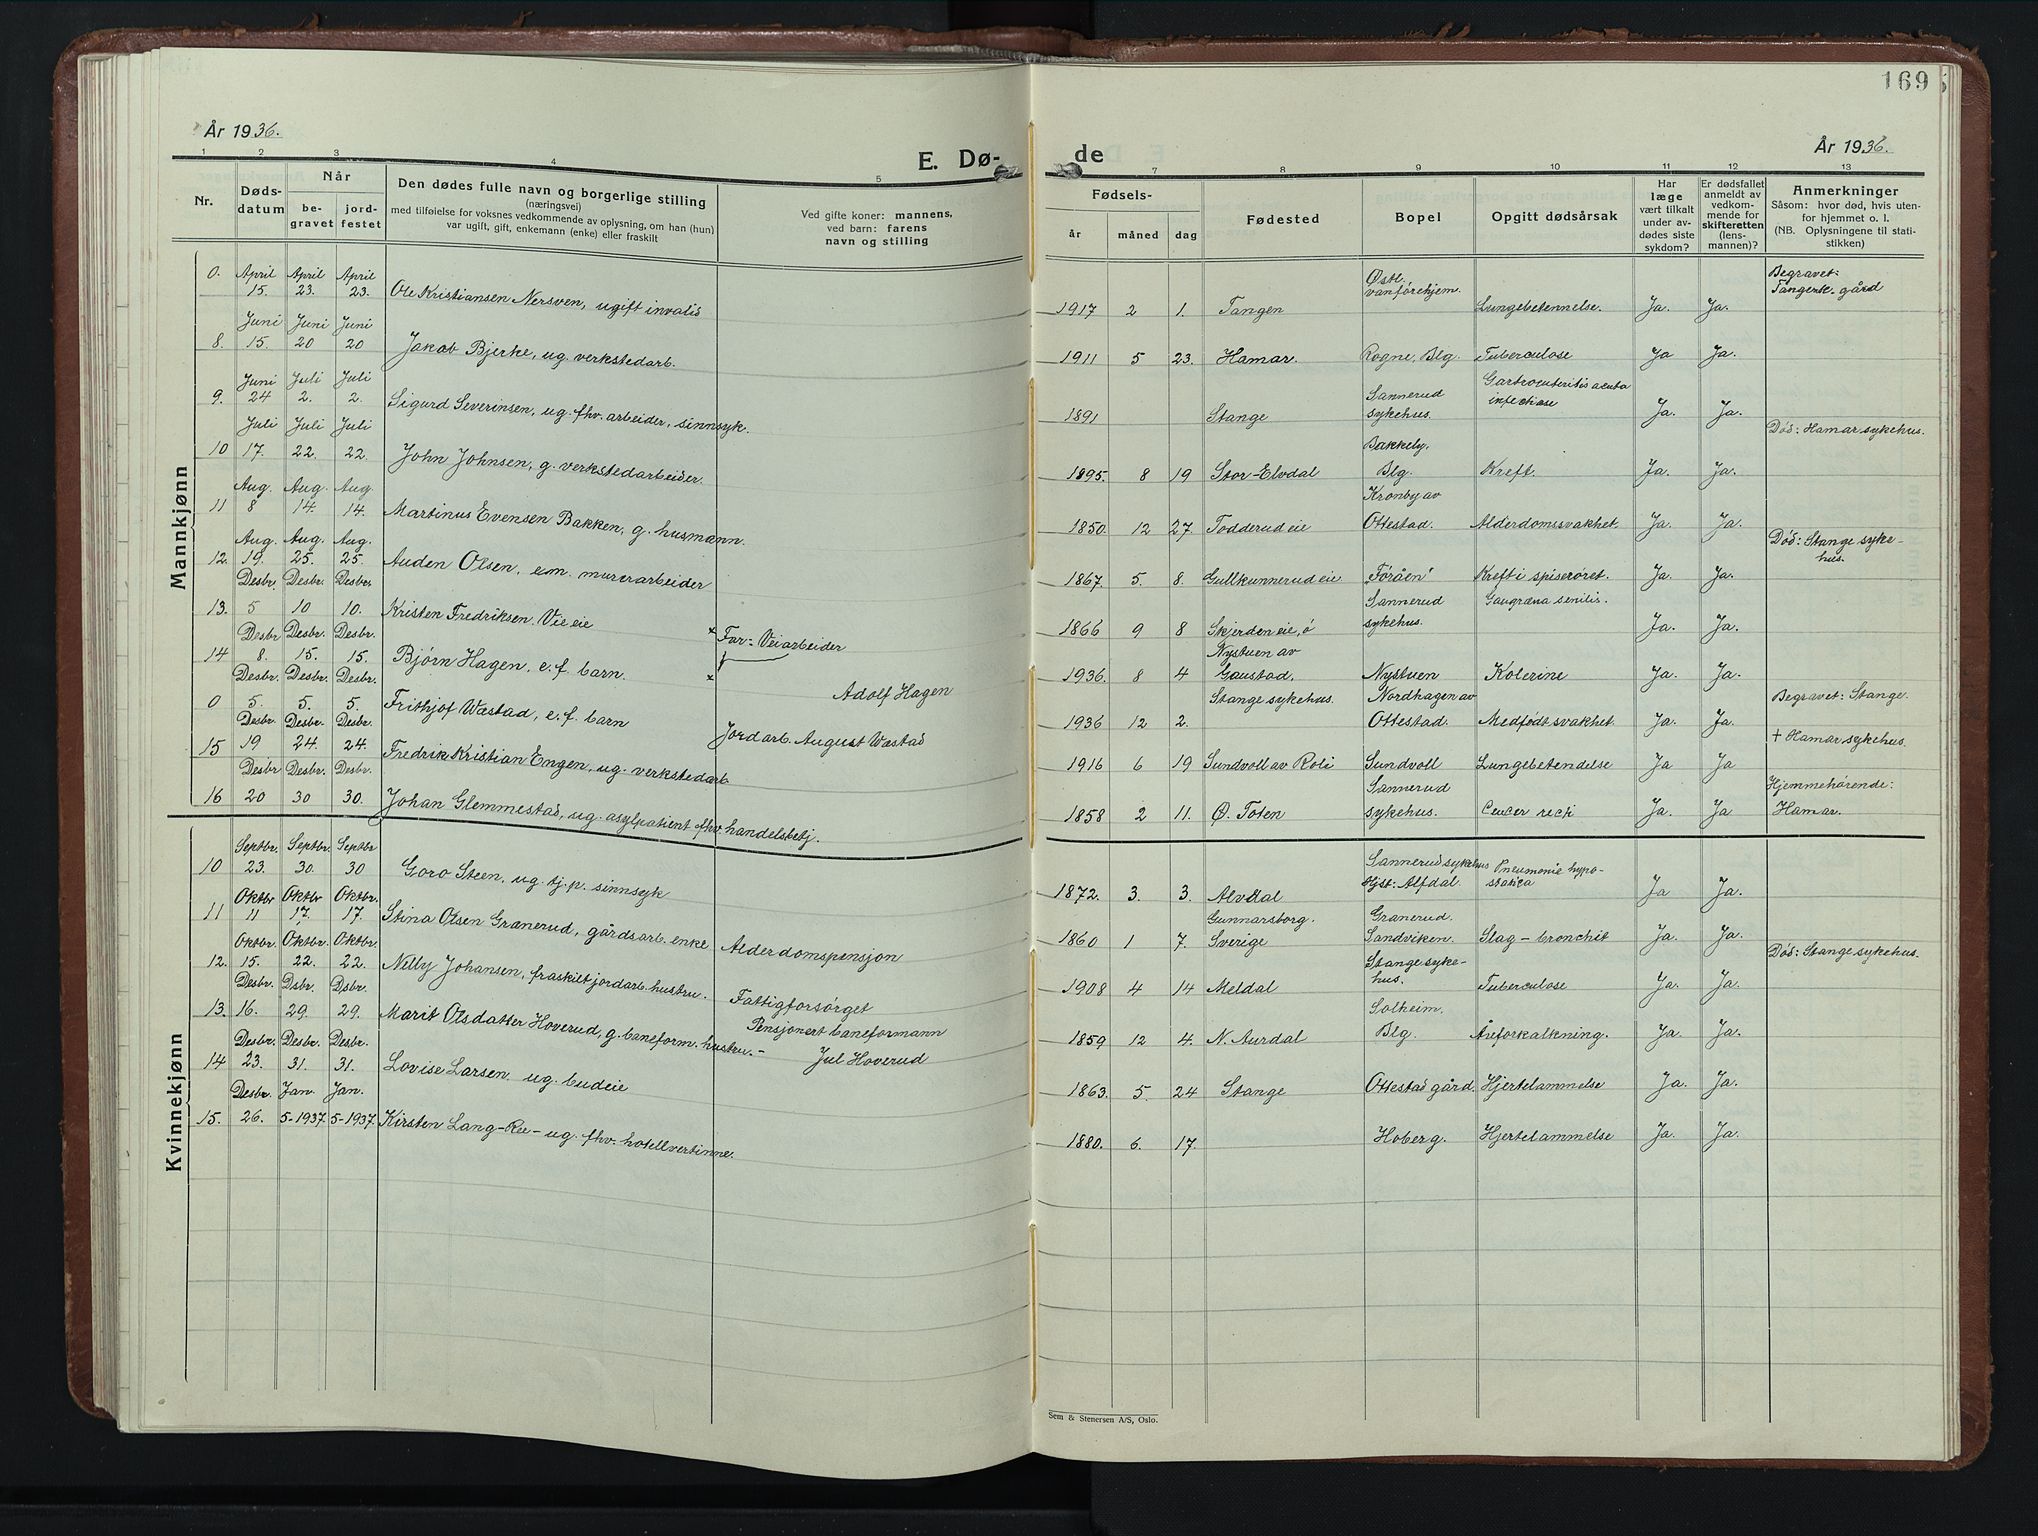 169
År 1936.
E. Dø-
de
År 1936.
1 2 3 4 5
7 8 9 10 11 12 13
Nr.
Døds-
datum
Når
be-
gravet
jord-
festet
Den dødes fulle navn og borgerlige stilling
(næringsvei)
med tilføielse for voksnes vedkommende av oplysning, om han (hun)
var ugift, gift, enkemann (enke) eller fraskilt
Ved gifte koner: mannens,
ved barn: farens
navn og stilling
Fødsels-
år
måned
dag
Fødested
Bopel
Opgitt dødsårsak
Har
læge
vært tilkalt
under av-
dødes siste
sykdom?
Er dødsfallet
anmeldt av
vedkom-
mende for
skifteretten
(lens-
mannen)?
Anmerkninger
Såsom: hvor død, hvis uten-
for hjemmet o. l.
(NB. Oplysningene til stati-
stikken)
Mannkjønn
0. April 15. April 23. April 23. Ole Kristiansen Nersven, ugift invalid 1917 2 1. Tangen Østl. vanførehjem. Lungebetennelse. Ja. Ja. Begravet: Tangenk. gård
8. Juni 15. Juni 20 Juni 20 Jakob Bjerke, ug. verkstedarb. 1911 5 23. Hamar. Rogne, Blg. Tuberculose Ja Ja.
9. Juni 24 Juli 2. Juli 2. Sigurd Severinsen, ug. fhv. arbeider, sinnsyk. 1891 Stange Sannerud sykehus. Gastroenteritis acuta infectiose Ja. Ja.
10 Juli 17. Juli 22. Juli 22. John Johnsen, g. verkstedarbeider. 1895. 8 19 Stor-Elvdal Bakkeby. Blg. Kreft. Ja. Ja. Død: Hamar sykehus.
11 Aug. 8 Aug. 14. Aug 14. Martinus Evensen Bakken, g. husmann. 1850. 12 27. Todderud eie Kronby av Ottestad. Alderdomssvakhet. Ja. Ja.
12. Aug. 19. Aug. 25. Aug. 25. Auden Olsen, e.m. murerarbeider 1867. 5. 8. Gullkunnerud eie Føråen Kreft i spiserøret. Ja. Ja. Død: Stange sykehus.
13. Desbr. 5 Desbr. 10 Desbr. 10. Kristen Fredriksen. Vie eie 1866 9 8 Skjerden eie, ó Sannerud sykehus. Gangræna senilis. Ja. Ja.
14 Desbr 8. Desbr. 15. Desbr. 15. Bjørn Hagen, e.f. barn. Far: Veiarbeider Adolf Hagen 1936. 8 4 Nystuen av Gaustad. Nystuen Kolerine Ja. Ja.
0 Desbr. 5. Desbr. 5. Desbr. 5. Frithjof Wæstad, e.f. barn Jordarb. August Wæstad 1936 12 2. Stange sykehus. Nordhagen av Ottestad. Medfødt svakhet. Ja. Ja Begravet: Stange.
15 Desbr. 19 Desbr. 24. Desbr. 24. Fredrik Kristian Engen, ug. verkstedarb. 1916 6 19 Sundvoll av Roli Sundvoll Lungebetendelse Ja Ja + Hamar sykehus.
16 Desbr 20 Desbr. 30 Desbr. 30. Johan Glemmestad, ug. asylpatient fhv. handelsbetj. 1858 2 11. Ø. Toten Sannerud sykehus. Cancer recti Ja. Ja Hjemmehørende: Hamar.
Kvinnekjønn
10 Septbr. 23. Septbr. 30. Septbr 30 Goro Steen, ug. tj.p. sinnsyk 1872. 3. 3. Alvdal Sannerud sykehus Hjst: Alfdal. Pneumonie hypostatica Ja Ja.
11 Oktbr 11 Oktbr 17. Oktbr 17. Stina Olsen Granerud, gårdsarb. enke Alderdomspensjon 1860 1 7. Gunnarsborg. Sverige Granerud. Sandviken. Slag - bronchit Ja. Ja.
12. Oktbr. 15. Oktbr. 22. Oktbr. 22. Nelly Johansen, fraskilt jordarb. hustru. Fattigforsørget 1908 4 14 Meldal Stange sykehus. Tuberculose Ja. Ja. Død: Stange sykehus.
13. Desbr. 16. Dsbr. 29. Dsbr. 29. Marit Olsdatter Hoverud, g. baneform. hustru. - Pensjonert baneformann Jul Hoverud 1859 12 4. N. Aurdal Solheim. Blg. Åreforkalkning. Ja. Ja.
14 Desbr. 23. Desbr. 31. Desbr. 31. Lovise Larsen. ug. budeie 1863. 5. 24 Stange Ottestad gård. Hjertelammelse Ja. Ja.
15. Desbr. 26. Jan. 5-1937. Jan. 5-1937. Kirsten Lang-Ree - ug. fhv. hotellvertinne. 1880. 6. 17. Hoberg. Hjertelammelse Ja. Ja.
Sem & Stenersen A/S, Oslo.